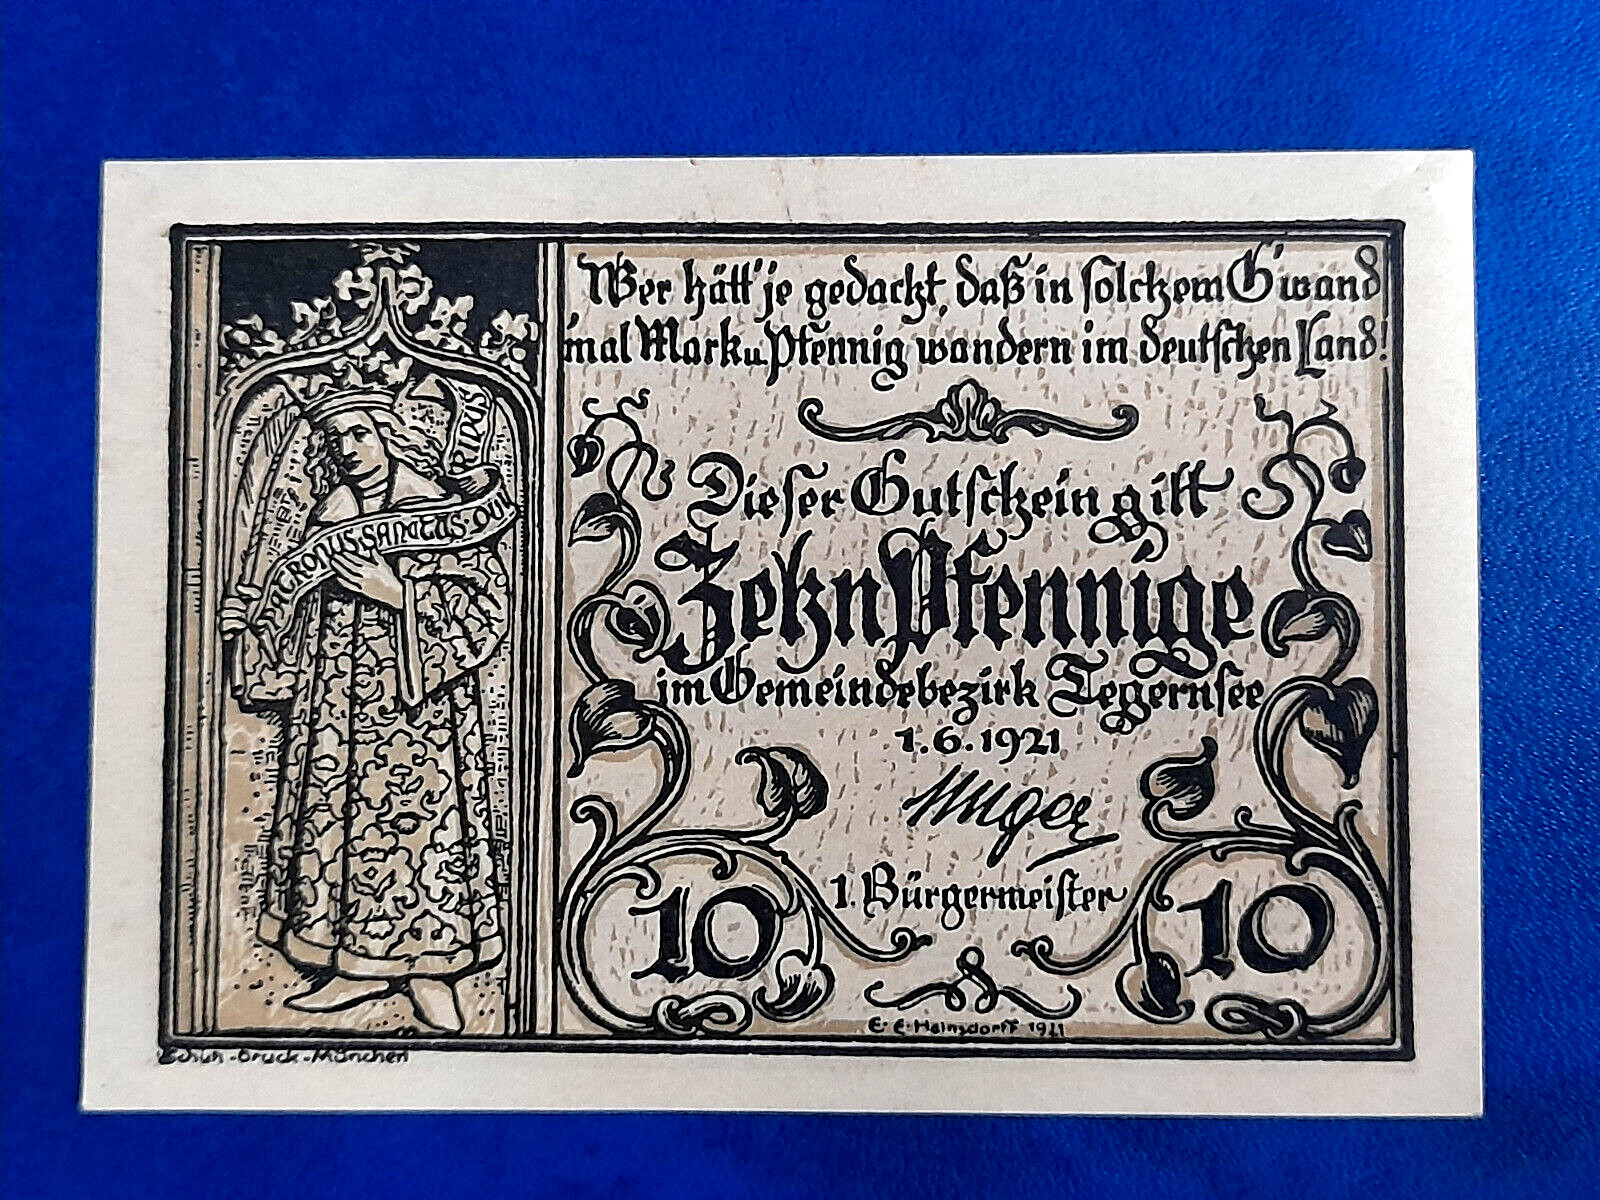 Wer hätt' je gedacht, daß in solchem G'wand
'mal Mark u. Pfennig wandern im deutschen Land!
PATRONUS SANCTUS QUI
RIDUS
Dieser Gutschein gilt
Zehn Pfennige
im Gemeindebezirk Tegernsee
1.6.1921
1. Bürgermeister
10 10
E. E. Heinsdorff 1921
-Druck-München